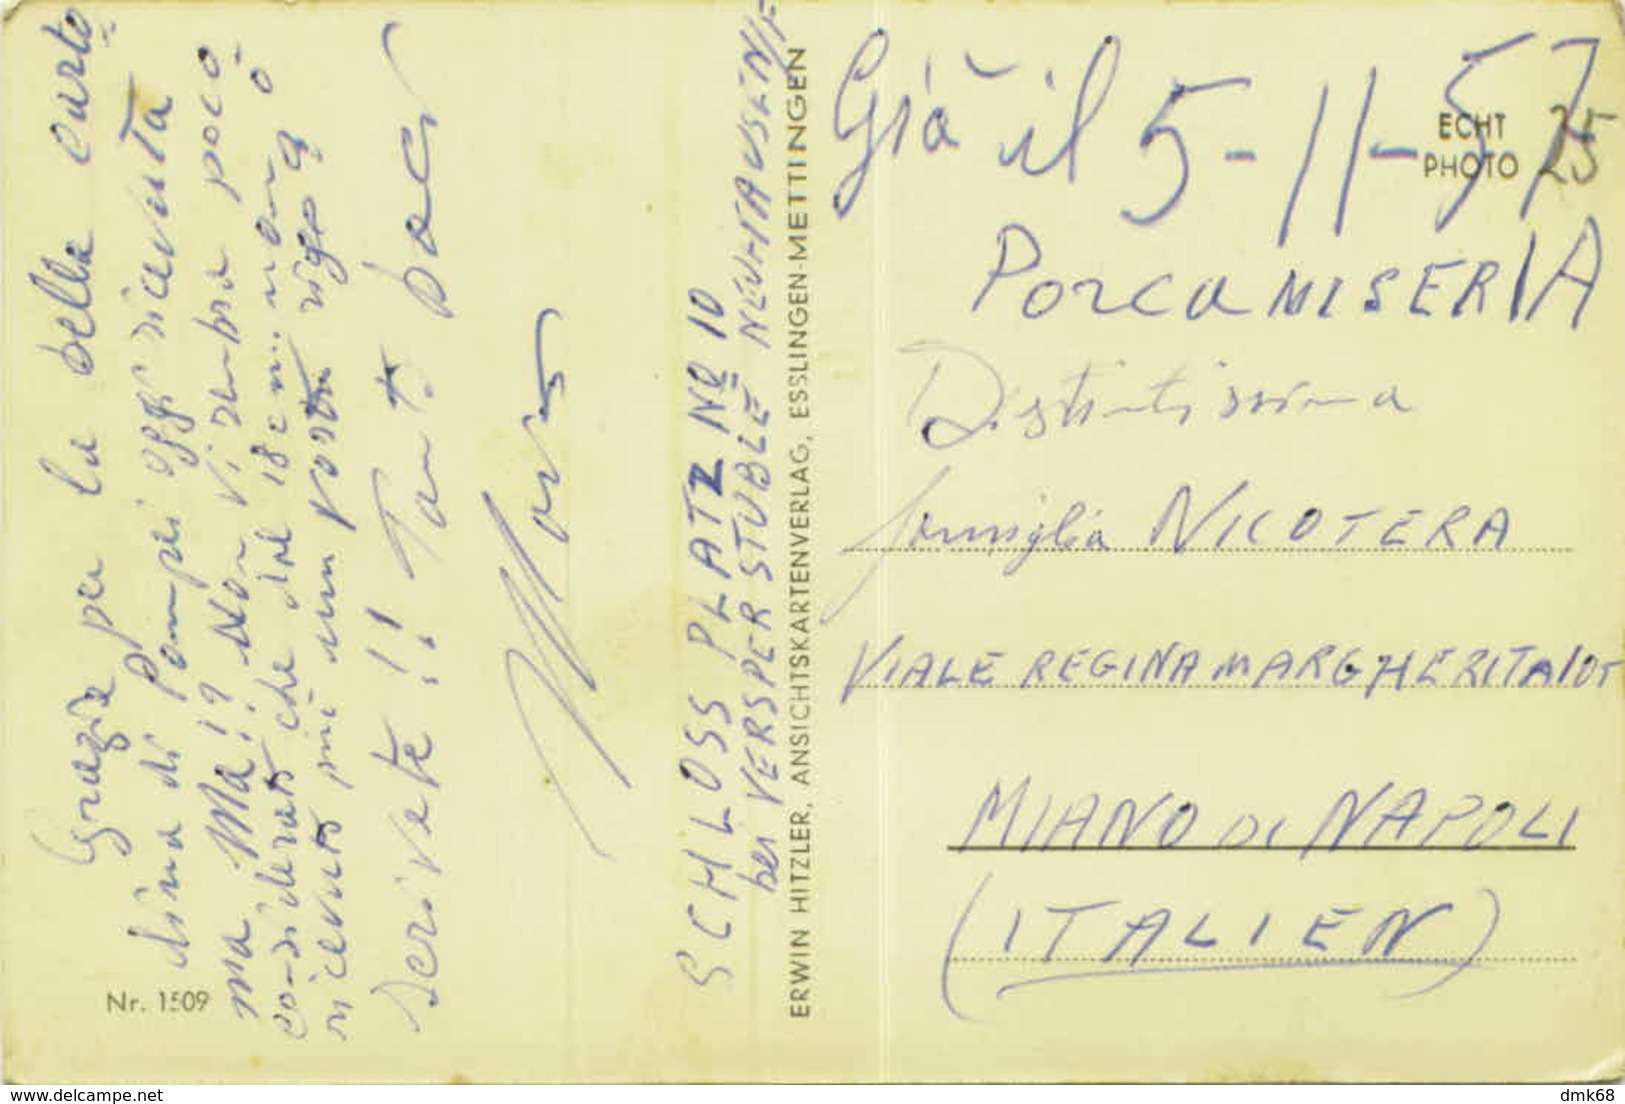 Grazie per la bella carto
lina di Pompei oggi ricevuta
ma Ma!? Non Vi sembra poco
considerato che dal 18 c.m. non ò
ricevuto più un vostro rigo?
scrivete!! Tanti baci
SCHLOSS PLATZ No 10
bei VERSPERSTUBLE NEUHAUSEN/F
ERWIN HITZLER, ANSICHTSKARTENVERLAG, ESSLINGEN-METTINGEN
Nr. 1509
Già il 5-11-57
ECHT
PHOTO
25
PORCA MISERIA
Distintissima
famiglia NICOTERA
VIALE REGINA MARGHERITA
MIANO DI NAPOLI
(ITALIEN)
delcampe.net
dmk68